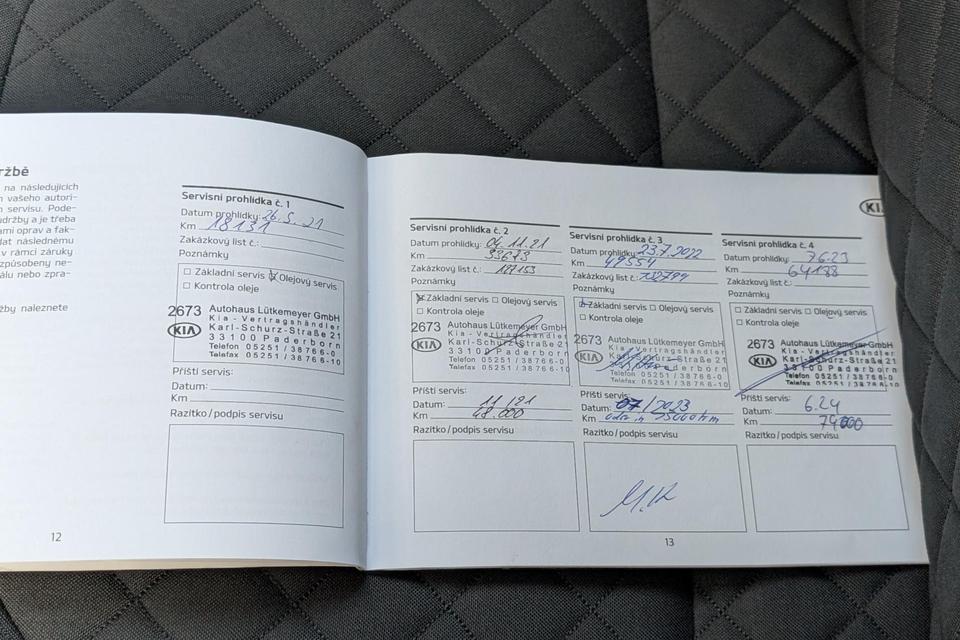 ržbě
na následujících
vašeho autori-
servisu. Pode-
údržby a je třeba
ami oprav a fak-
dat následnému
v rámci záruky
způsobeny ne-
álu nebo zpra-
žby naleznete
12
Servisní prohlídka č. 1
Datum prohlídky: 26.5.21
Km 18131
Zakázkový list č.:
Poznámky
Základní servis Olejový servis
Kontrola oleje
2673 Autohaus Lütkemeyer GmbH
KIA Kia - Vertragshändler
Karl-Schurz-Straße 21
33100 Paderborn
Telefon 05251/38766-0
Telefax 05251/38766-10
Příští servis:
Datum:
Km
Razítko/podpis servisu
Servisní prohlídka č. 2
Datum prohlídky: 04.11.21
Km 33673
Zakázkový list č.: 117153
Poznámky
Základní servis Olejový servis
Kontrola oleje
2673 Autohaus Lütkemeyer GmbH
KIA Kia - Vertragshändler
Karl-Schurz-Straße 21
33100 Paderborn
Telefon 05251/38766-0
Telefax 05251/38766-10
Příští servis:
Datum: 11/21
Km 48.000
Razítko/podpis servisu
Servisní prohlídka č. 3
Datum prohlídky: 23.7.2022
Km 49554
Zakázkový list č.:
Poznámky
Základní servis Olejový servis
Kontrola oleje
2673 Autohaus Lütkemeyer GmbH
KIA Kia - Vertragshändler
Karl-Schurz-Straße 21
33100 Paderborn
Telefon 05251/38766-0
Telefax 05251/38766-10
Příští servis:
Datum: 07/2023
Km
Razítko/podpis servisu
Servisní prohlídka č. 4
Datum prohlídky: 7.6.23
Km 64188
Zakázkový list č.:
Poznámky
Základní servis Olejový servis
Kontrola oleje
2673 Autohaus Lütkemeyer GmbH
KIA Kia - Vertragshändler
Karl-Schurz-Straße 21
33100 Paderborn
Telefon 05251/38766-0
Telefax 05251/38766-10
Příští servis:
Datum: 6.24
Km 79000
Razítko/podpis servisu
13